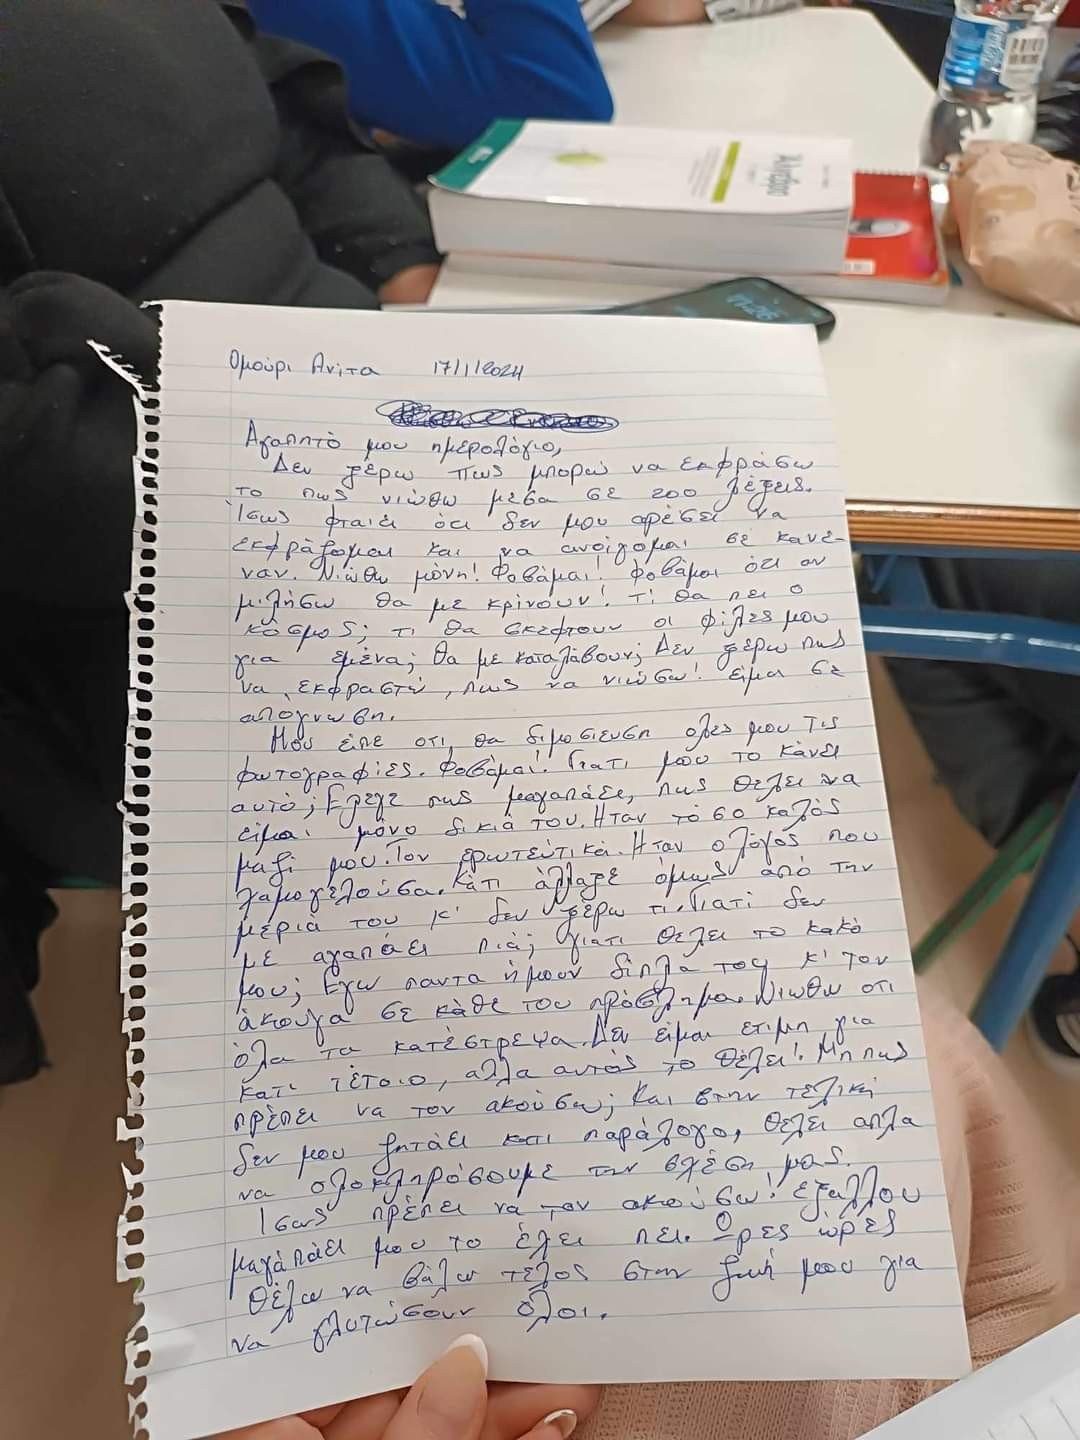 Άλγεβρα
Ομούρι Ανίτα 17/1/2024
Αγαπητό μου ημερολόγιο,
Δεν ξέρω πως μπορώ να εκφράσω
το πως νιώθω μέσα σε 200 λέξεις.
Ίσως φταίει ότι δεν μου αρέσει να
εκφράζομαι και να ανοίγομαι σε κανέ-
ναν. Νιώθω μόνη! Φοβάμαι! Φοβάμαι ότι αν
μιλήσω θα με κρίνουν! τί θα πει ο
κόσμος; τι θα σκεφτουν οι φίλες μου
για εμένα; θα με καταλάβουν; Δεν ξέρω πως
να εκφραστώ, πως να νιώσω! είμαι σε
απόγνωση.
Μου είπε οτι θα διμοσιευση ολες μου τις
φωτογραφίες. Φοβάμαι! Γιατι μου το κάνει
αυτό; Ελεγε πως μαγαπάει, πως θέλει να
είμαι μόνο δικιά του. Ηταν τόσο καλός
μαζί μου. Τον ερωτεύτικα. Ηταν ο λόγος που
χαμογελούσα. Κάτι άλλαξε όμως από την
μεριά του κ' δεν ξέρω τι. Γιατί δεν
με αγαπάει πιά; γιατι θέλει το κακό
μου; Εγω παντα ήμουν δίπλα του κ' τον
άκουγα σε κάθε του πρόβλημα. Νιωθω οτι
όλα τα κατέστρεψα. Δεν είμαι ετιμη για
κατι τέτοιο, αλλα αυτός το θέλει! Μηπως
πρέπει να τον ακούσω; Και στην τελική
δεν μου ζητάει κατι παράλογο, θέλει απλα
να ολοκληρόσουμε την σχέση μας.
Ισως πρέπει να τον ακούσω! εξαλλου
μαγάπαει μου το έχει πει. Ώρες ώρες
θέλω να βάλω τέλος στην ζωή μου για
να γλυτώσουν όλοι.